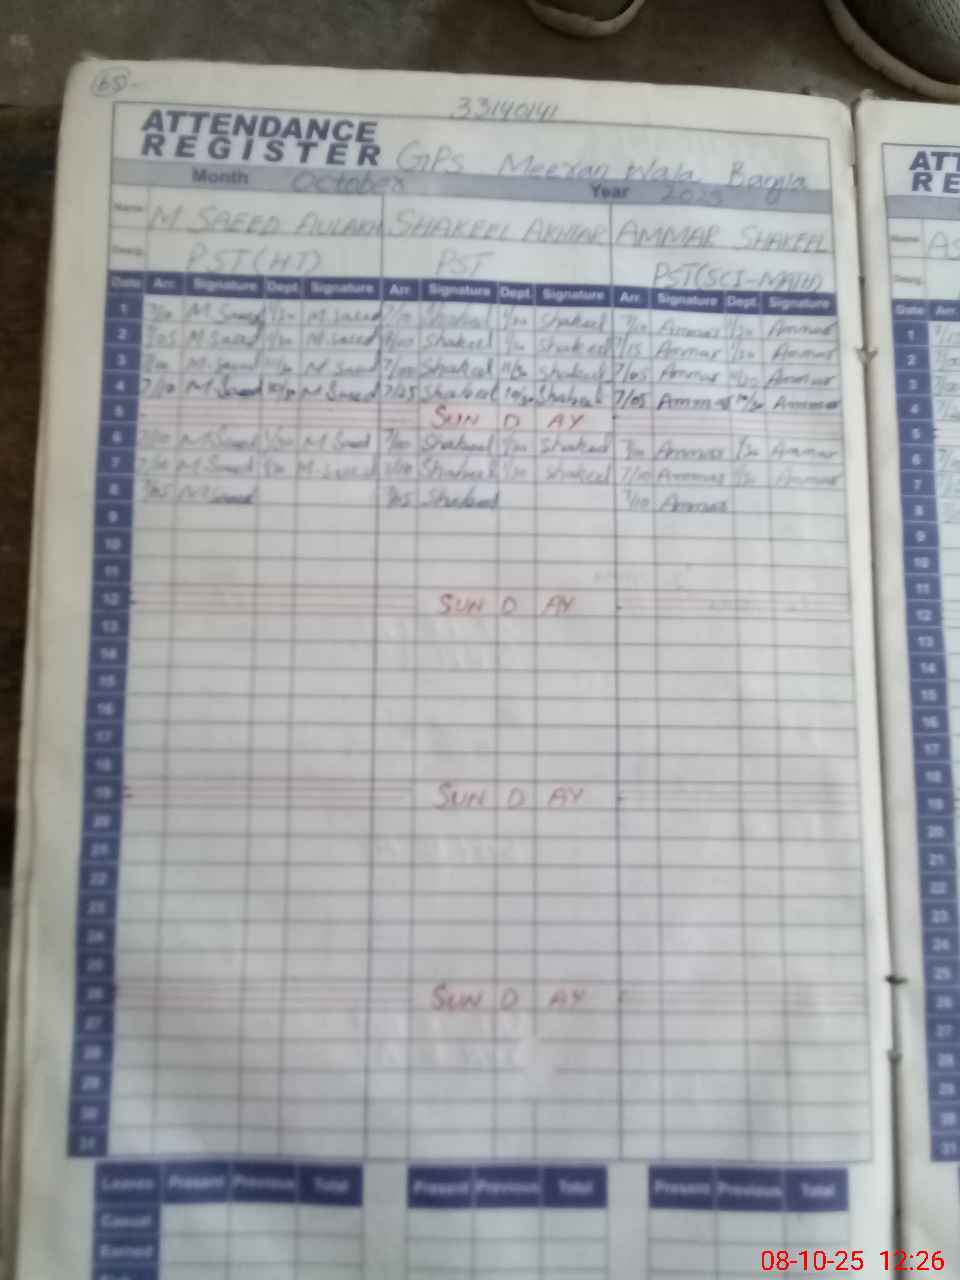 65
33140141
ATTENDANCE REGISTER GPS Meeran Wala Bangla
Month October Year 2025
Name M SAEED AULAKH SHAKEEL AKHTAR AMMAR SHAKEEL
Desig. PST(HT) PST PST(SCI-MATH)
Date Arr. Signature Dept. Signature Arr. Signature Dept. Signature Arr. Signature Dept. Signature
1 7/10 M Saeed M Saeed 7/10 Shakeel Shakeel 7/10 Ammar Ammar
2 7/05 M Saeed M Saeed Shakeel Shakeel 7/15 Ammar Ammar
3 M Saeed M Saeed Shakeel Shakeel 7/05 Ammar Ammar
4 7/10 M Saeed M Saeed 7/25 Shakeel Shakeel 7/05 Ammar Ammar
5 SUN D AY
6 M Saeed M Saeed Shakeel Shakeel Ammar Ammar
7 7/10 M Saeed M Saeed 7/10 Shakeel Shakeel 7/10 Ammar Ammar
8 7/05 M Saeed 7/05 Shakeel 7/10 Ammar
9
10
11
12 SUN D AY
13
14
15
16
17
18
19 SUN D AY
20
21
22
23
24
25
26 SUN D AY
27
28
29
30
31
Leaves Present Previous Total Present Previous Total Present Previous Total
Casual
Earned
ATT
RE
Name AS
Desig.
Date Arr.
1
2
3
4
5
6
7
8
9
10
11
12
13
14
15
16
17
18
19
20
21
22
23
24
25
26
27
28
29
30
31
08-10-25 12:26